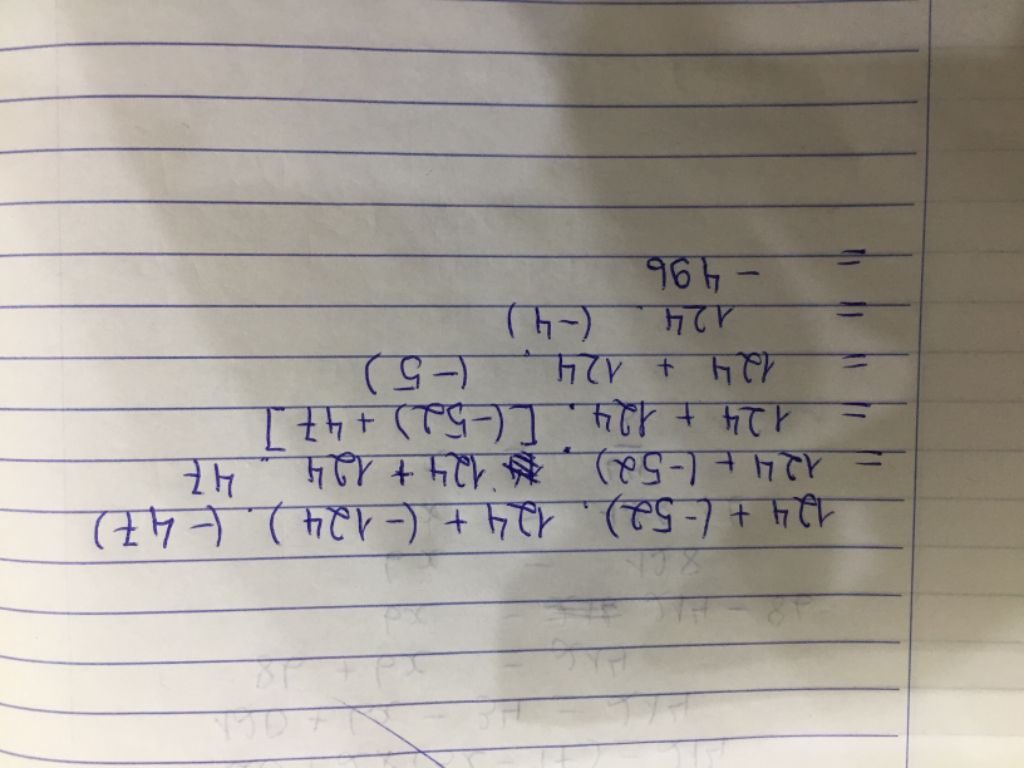 124 + (-52) . 124 + (-124) . (-47)
= 124 + (-52) . 124 + 124 . 47
= 124 + 124 . [(-52) + 47]
= 124 + 124 . (-5)
= 124 . (-4)
= - 496